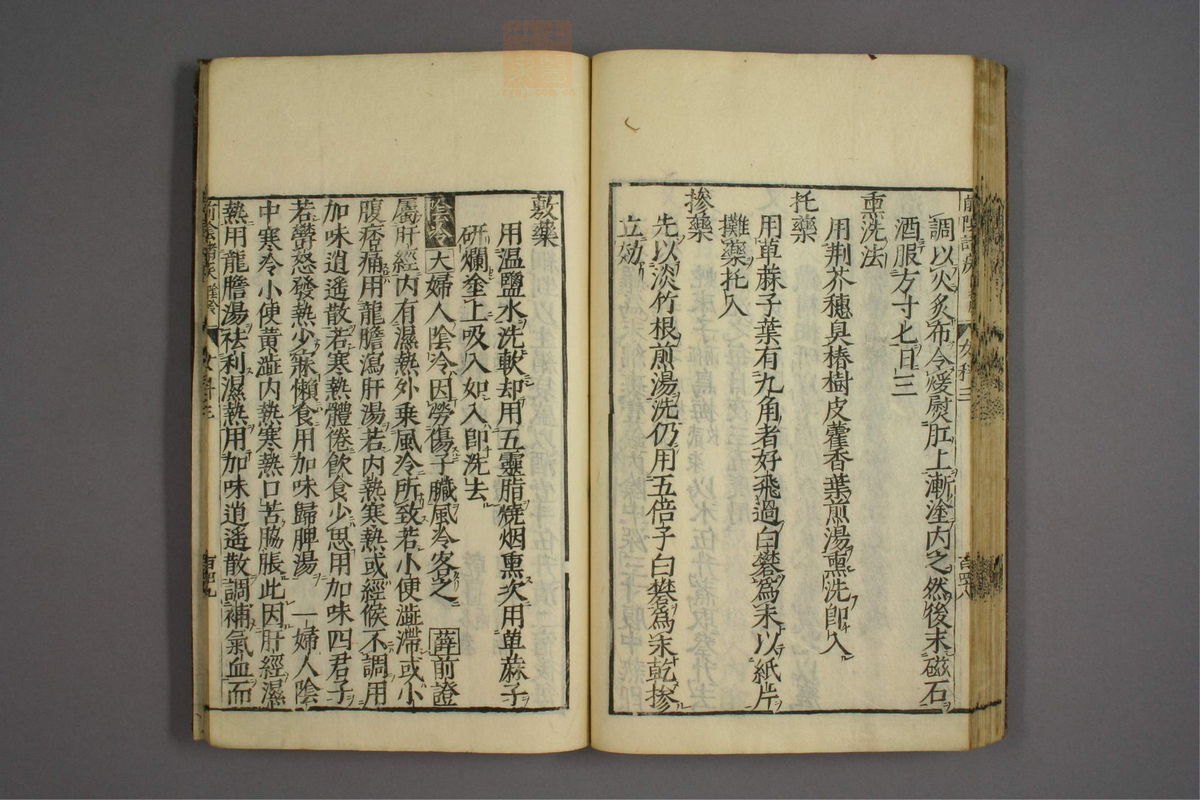 調以火炙布令煖熨肛上漸塗内之然後末磁石
酒服方寸匕日三
熏洗法
用荆芥穗臭椿樹皮藿香葉煎湯熏洗即入
托藥
用萆蔴子葉有九角者好飛過白礬爲末以紙片
攤藥托入
摻藥
先以淡竹根煎湯洗仍用五倍子白礬爲末乾摻
立効
敷藥
用温鹽水洗軟却用五靈脂燒烟熏次用萆蔴子
研爛塗上吸入如入即洗去
陰冷 大婦人陰冷因勞傷子臟風冷客之 薛 前證
屬肝經内有濕熱外乗風冷所致若小便澁滯或小
腹痞痛用龍膽瀉肝湯若内熱寒熱或經候不調用
加味逍遥散若寒熱體倦飲食少思用加味四君子
若欝怒發熱少寐懶食用加味歸脾湯 一婦人陰
中寒冷小便黄澁内熱寒熱口苦脇脹此因肝經濕
熱用龍膽湯祛利濕熱用加味逍遥散調補氣血而